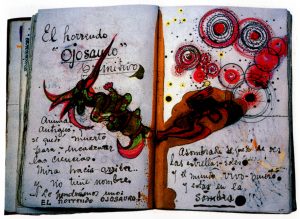 El horrendo
"OJOSAURO"
Primitivo
Animal
Antiguo,
se quedó muerto
para encadenar
las ciencias.
Mira hacia arriba..
Y No tiene nombre.
Lo llamaremos
EL horrendo OJOSAURO!
Asombrada se quedó de ver
las estrellas-soles
y el mundo vivo-muerto
y estar en la
sombra